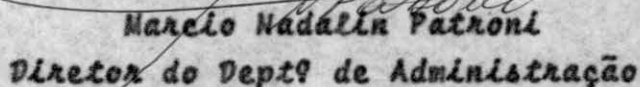 Marcio Nadalin Patroni
Diretor do Deptº de Administração